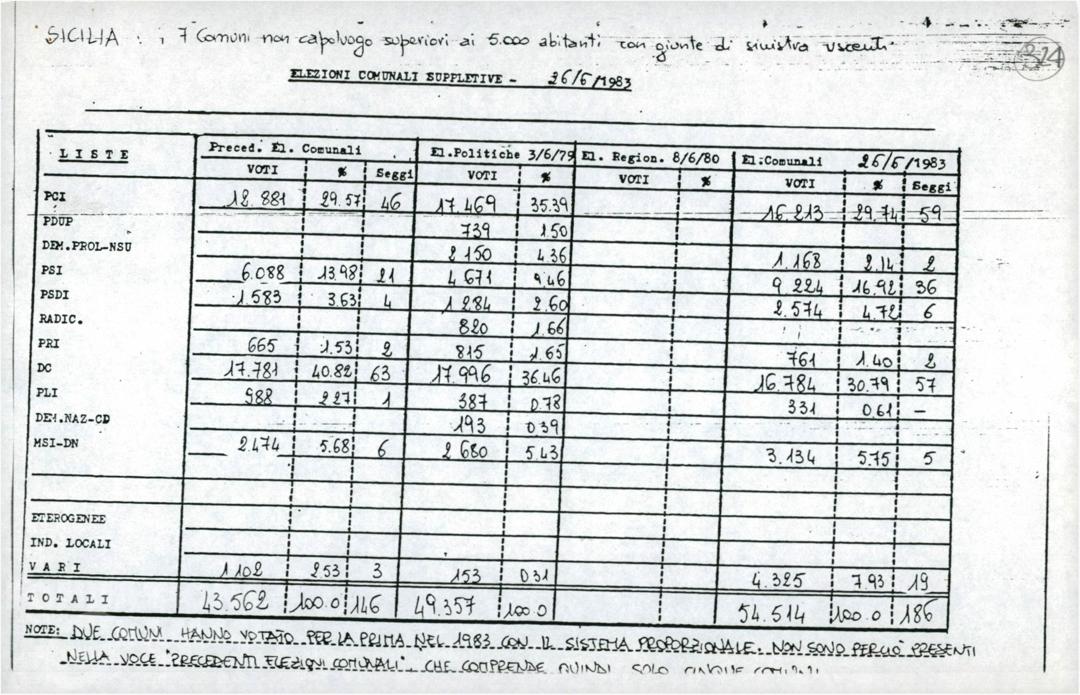 SICILIA : , 7 Comuni non capoluogo superiori ai 5.000 abitanti con giunte di sinistra uscenti.
824
ELEZIONI COMUNALI SUPPLETIVE - 26/6/1983
LISTE Preced. El. Comunali El.Politiche 3/6/79 El. Region. 8/6/80 El:Comunali 26/6/1983
VOTI % Seggi VOTI % VOTI % VOTI % Seggi
PCI 12.881 29.57 46 17.469 35.39 16.213 29.74 59
PDUP 739 1.50
DEM.PROL-NSU 2 150 4.36 1.168 2.14 2
PSI 6.088 13 98 21 4 671 9.46 9.224 16.92 36
PSDI 1.583 3.63 4 1 284 2.60 2.574 4.72 6
RADIC. 820 1.66
PRI 665 1.53 2 815 1.65 761 1.40 2
DC 17.781 40.82 63 17.996 36.46 16.784 30.79 57
PLI 988 2.27 1 387 0.78 331 0.61 -
DEM.NAZ-CD 193 0 39
MSI-DN 2.474 5.68 6 2 680 5.43 3.134 5.75 5
ETEROGENEE
IND. LOCALI
VARI 1 102 2.53 3 153 0 31 4.325 7.93 19
TOTALI 43.562 100.0 146 49.357 100.0 54.514 100.0 186
NOTE: DUE COMUNI HANNO VOTATO PER LA PRIMA NEL 1983 CON IL SISTEMA PROPORZIONALE. NON SONO PERCIO' PRESENTI
NELLA VOCE "PRECEDENTI ELEZIONI COMUNALI". CHE COMPRENDE QUINDI SOLO CINQUE COMUNI